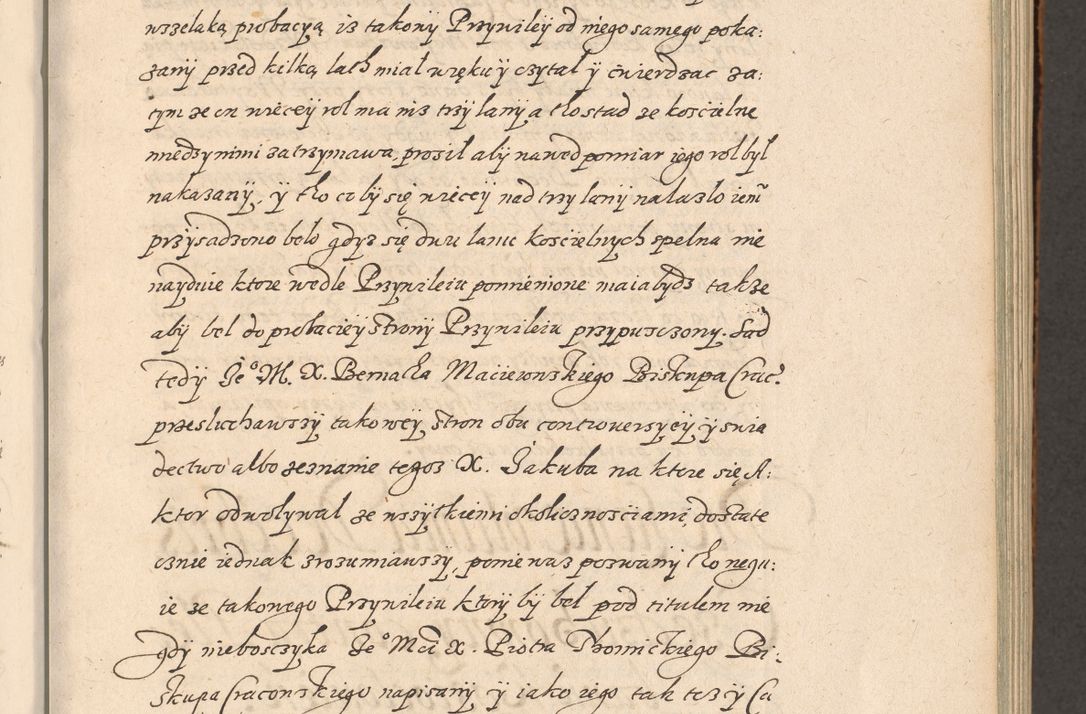 wszelaką probacyą, iż takowy Przywiley od niego samego poka:
zany przed kilką lath miał wręku y czytał y twierdzac za:
tym że on więcey rol ma niż trzy łany a tho stad że kościelne
miedzy nimi zatrzymawa, prosił aby nawed pomiar iego rol był
nakazany, y tho co by się więcey nad trzy łany nalazło iemu
przysadzono beło gdyż się dwu łanu kościelnych spełna nie
nayduie ktore wedle Przywileiu pomienione maia bydz także
aby beł do probaciey strony Przywileiu przypusczony. Sad
tedy Je° M. X. Bernatha Macieiowskiego Biskupa Crac.
przesluchawszy takowey stron obu controwersyey y swia
dectwo albo zeznanie tegoż X. Jakuba na ktore się A:
ktor odwoływał ze wszytkiemi okolicznosciami, dostate
cznie iednak zrozumiawszy, poniewaz pozwany tho negu:
ie że takowego Przywileiu ktory by beł pod titulem nie
gdy nieboszczyka Je° Mci X. Piotra Thomickiego Bi:
skupa Cracowskiego napisany y iako iego tak też y Ca